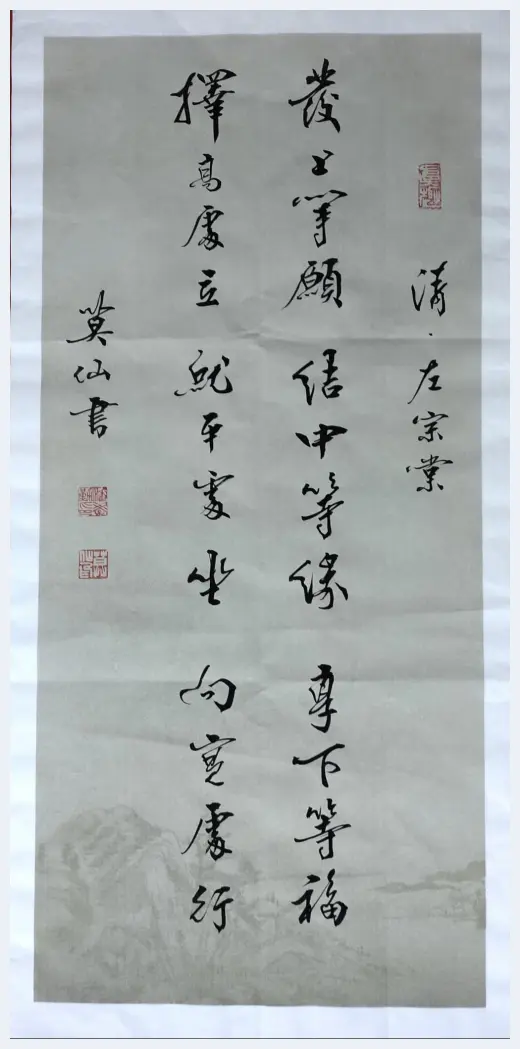 清·左宗棠
發上等願 結中等緣 享下等福
擇高處立 就平處坐 向寬處行
莫仙書